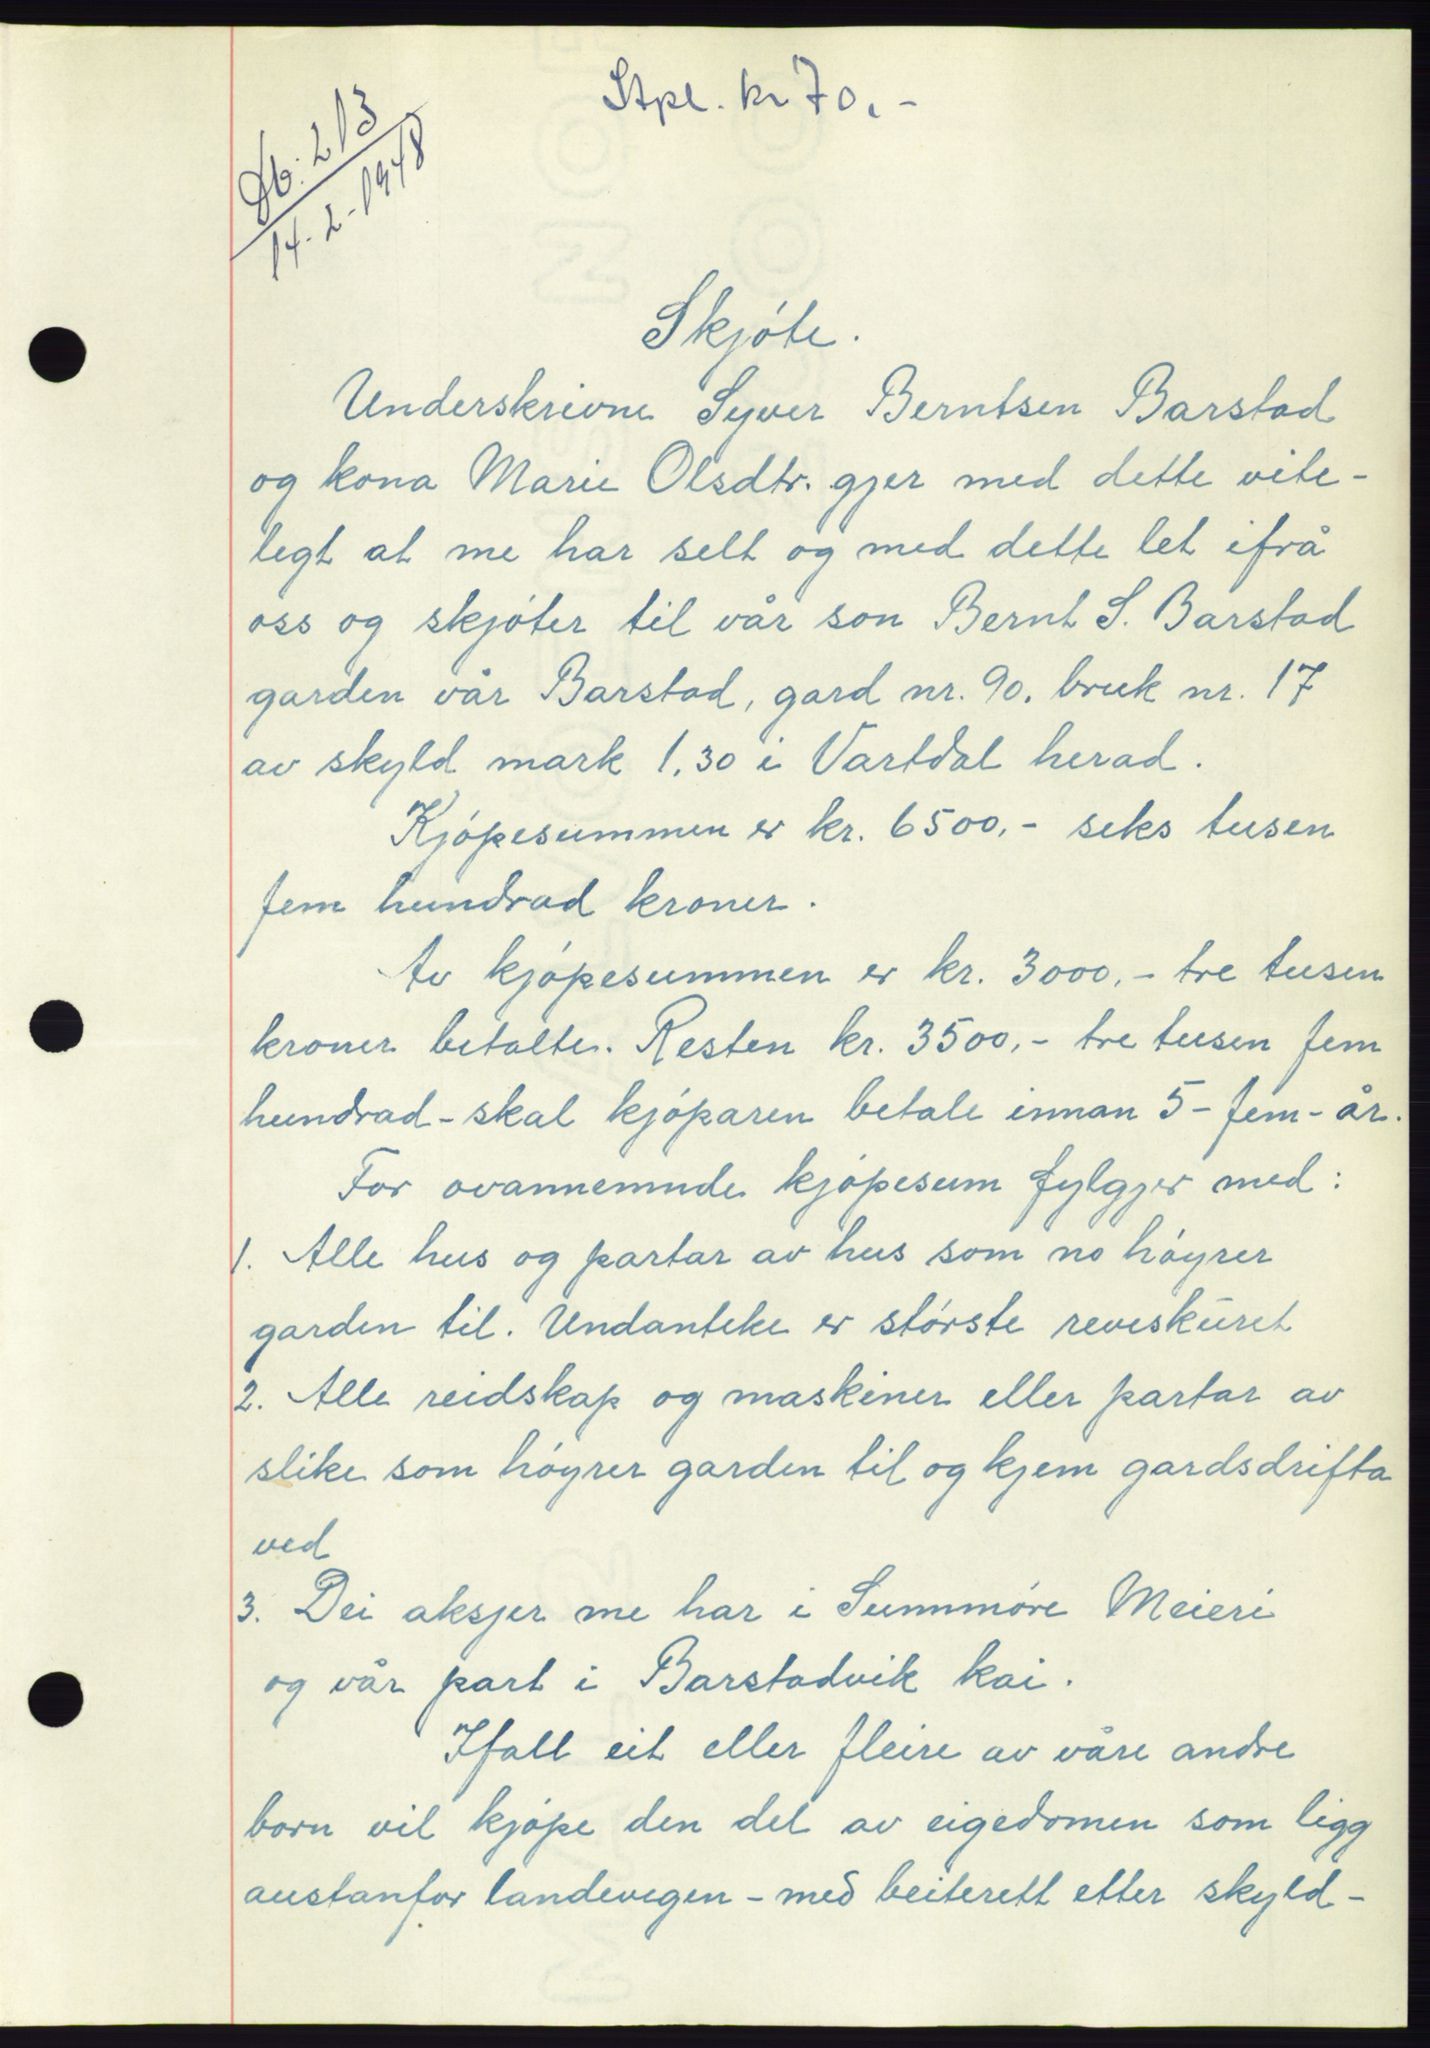 Stpl. kr 70.-
Db: 213
14-2-1948
Skjóte.
Underskrivne Syver Berntsen Barstad
og kona Marie Olsdtr. gjer med dette vite-
legt at me har selt og med dette let ifrå
oss og skjóter til vår son Bernt S. Barstad
garden vår Barstad, gard nr. 90. bruk nr. 17
av skyld mark 1,30 i Vartdal herad.
Kjópesummen er kr. 6500,- seks tusen
fem hundrad kroner.
Av kjópesummen er kr. 3000,- tre tusen
kroner betalte. Resten kr. 3500,- tre tusen fem
hundrad - skal kjóparen betale innan 5 - fem - år.
For ovannemnde kjópesum fylgjer med:
1. Alle hus og partar av hus som no hóyrer
garden til. Undanteke er stórste reveskūret
2. Alle reidskap og maskiner eller partar av
slike som hóyrer garden til og kjem gardsdrifta
ved
3. Dei aksjer me har i Sunnmóre Meieri
og vår part i Barstadvik kai.
Ifall eit eller fleire av våre andre
born vil kjópe den del av eigedomen som ligg
austanfor landevegen - med beiterett etter skyld-